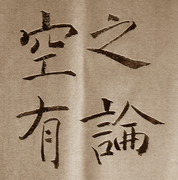 之論
空有